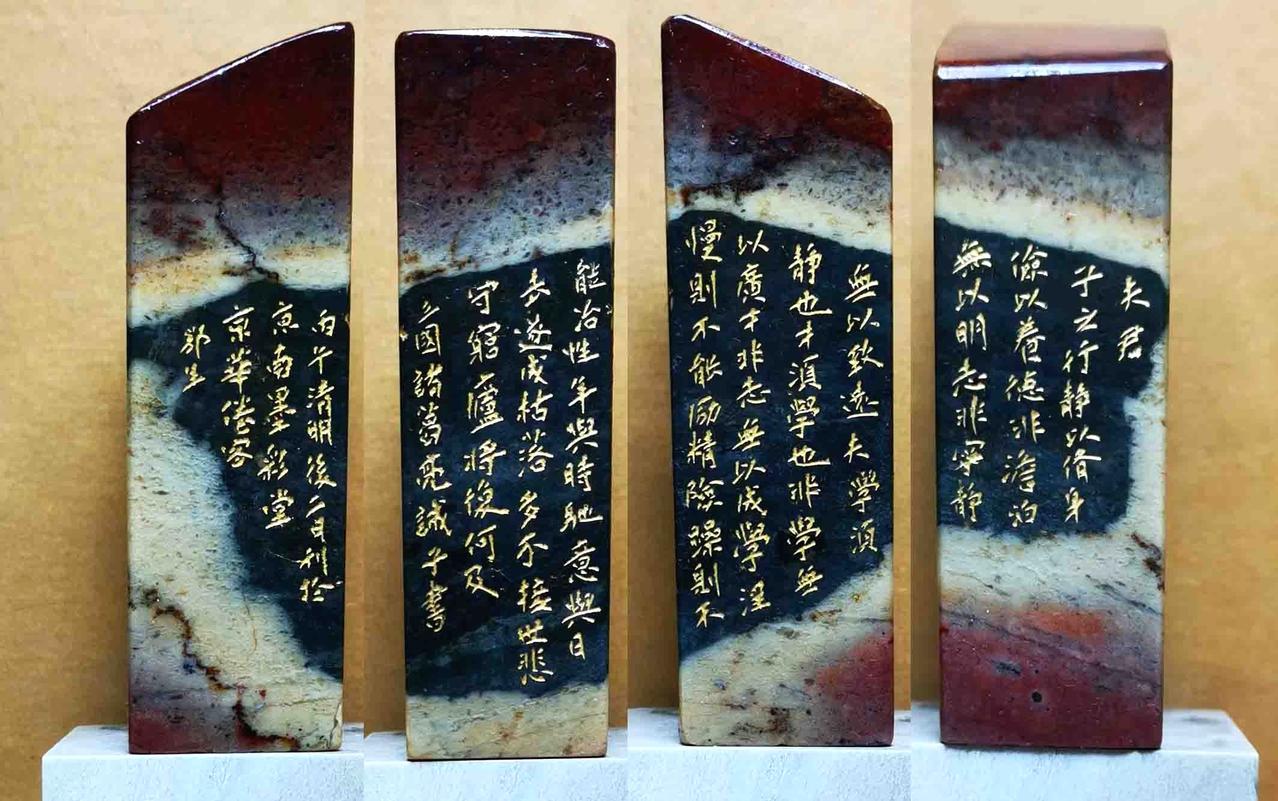 夫君
子之行静以脩身
儉以養德非澹泊
無以明志非寧静
無以致遠夫學須
静也才須學也非學無
以廣才非志無以成學淫
慢則不能励精險躁則不
能冶性年與時馳意與日
去遂成枯落多不接世悲
守窮廬將復何及
三國諸葛亮誡子書
丙午清明後二日刊於
京南墨彩堂
京華倦客